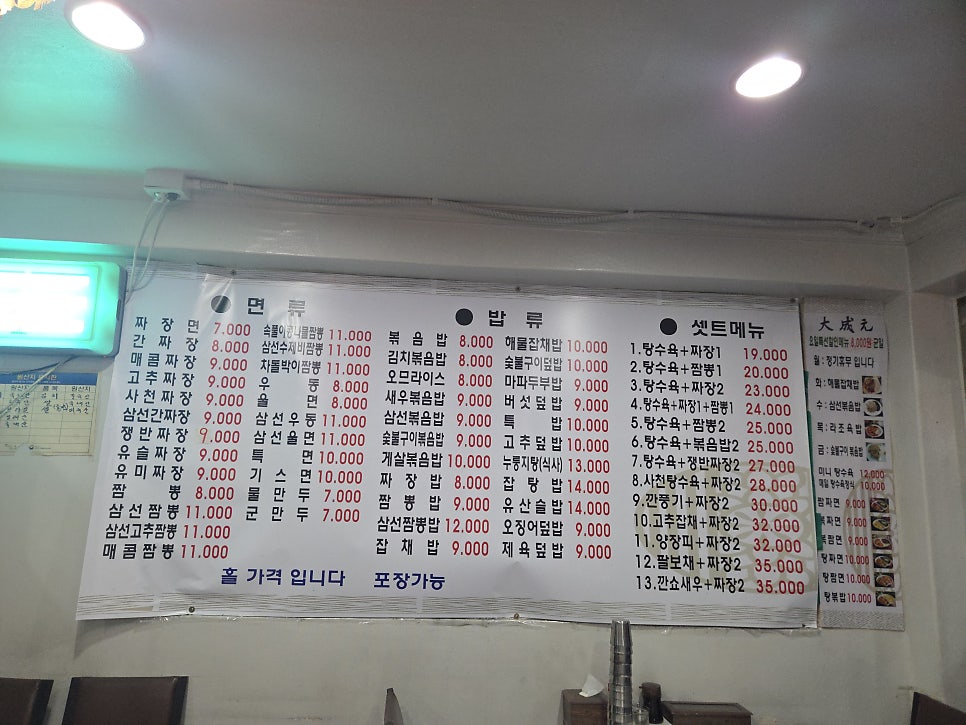 ● 면 류
짜장면 7.000
간짜장 8.000
매콤짜장 9.000
고추짜장 9.000
사천짜장 9.000
삼선간짜장 9.000
쟁반짜장 9.000
유슬짜장 9.000
유미짜장 9.000
짬뽕 8.000
삼선짬뽕 11.000
삼선고추짬뽕 11.000
매콤짬뽕 11.000
속풀이콩나물짬뽕 11.000
삼선수제비짬뽕 11.000
차돌박이짬뽕 11.000
우동 8.000
울면 8.000
삼선우동 11.000
삼선울면 11.000
특면 10.000
기스면 10.000
물만두 7.000
군만두 7.000
● 밥 류
볶음밥 8.000
김치볶음밥 8.000
오므라이스 8.000
새우볶음밥 9.000
삼선볶음밥 9.000
숯불구이볶음밥 9.000
게살볶음밥 10.000
짜장밥 8.000
짬뽕밥 9.000
삼선짬뽕밥 12.000
잡채밥 9.000
해물잡채밥 10.000
숯불구이덮밥 10.000
마파두부밥 9.000
버섯덮밥 9.000
특밥 10.000
고추덮밥 10.000
누룽지탕(식사) 13.000
잡탕밥 14.000
유산슬밥 14.000
오징어덮밥 9.000
제육덮밥 9.000
● 셋트메뉴
1.탕수육+짜장1 19.000
2.탕수육+짬뽕1 20.000
3.탕수육+짜장2 23.000
4.탕수육+짜장1+짬뽕1 24.000
5.탕수육+짬뽕2 25.000
6.탕수육+볶음밥2 25.000
7.탕수육+쟁반짜장2 27.000
8.사천탕수육+짜장2 28.000
9.깐풍기+짜장2 30.000
10.고추잡채+짜장2 32.000
11.양장피+짜장2 32.000
12.팔보채+짜장2 35.000
13.깐쇼새우+짜장2 35.000
홀 가격 입니다 포장가능
大成元
요일특선할인메뉴 8,000원 균일
월 : 정기휴무 입니다
화 : 해물잡채밥
수 : 삼선볶음밥
목 : 라조육밥
금 : 숯불구이 볶음밥
미니 탕수육 12,000
탕수육정식 10,000
짬짜면 9.000
볶짜면 9.000
볶짬면 9.000
탕짜면 10.000
탕짬면 10.000
탕볶밥 10.000